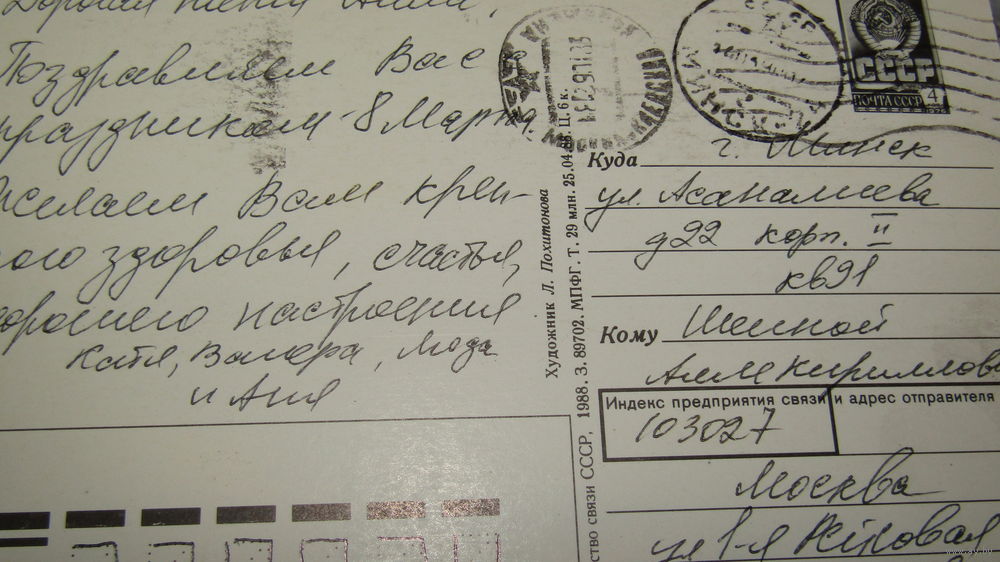 Дорогая тётя Анна,
Поздравляем Вас с
праздником - 8 Марта.
Желаем Вам креп-
кого здоровья, счастья,
хорошего настроения
Катя, Валера,
и Аня
СССР
ПОЧТА СССР
4
Куда г. Минск
ул. Асаналиева
д 22 корп. II
кв 91
Кому
Кириллов
Индекс предприятия связи и адрес отправителя
103027
Москва
ул 1-я
Художник Л. Похитонова
ство связи СССР, 1988. З. 89702. МПФГ. Т. 29 млн. 25.04.88. Ц. 6 к.